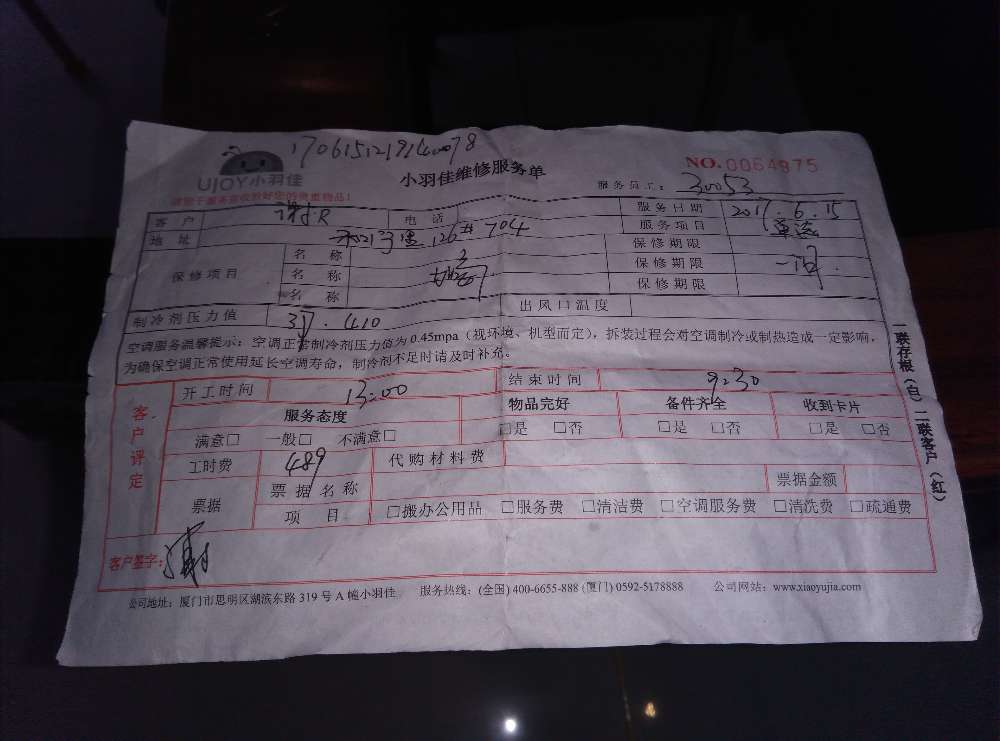 1706151219140078
UJOY小羽佳
小羽佳维修服务单
NO.0064975
服务员工: 30053
客户
电话
服务日期 2017.6.15
地址 126# 704
服务项目
保修项目
名称
保修期限
名称
保修期限
名称
保修期限
制冷剂压力值 37.410
出风口温度
空调服务温馨提示:空调正常制冷剂压力值为0.45mpa(视环境、机型而定),拆装过程会对空调制冷或制热造成一定影响,
为确保空调正常使用延长空调寿命,制冷剂不足时请及时补充。
客户评定
开工时间 13:00
结束时间 9:30
服务态度
物品完好
备件齐全
收到卡片
满意□ 一般□ 不满意□
□是 □否
□是 □否
□是 □否
工时费 489
代购材料费
票据
票据名称
票据金额
项目
□搬办公用品 □服务费 □清洁费 □空调服务费 □清洗费 □疏通费
客户签字:
公司地址:厦门市思明区湖滨东路319号A幢小羽佳 服务热线:(全国) 400-6655-888 (厦门) 0592-5178888 公司网站:www.xiaoyujia.com
一联存根(白)二联客户(红)